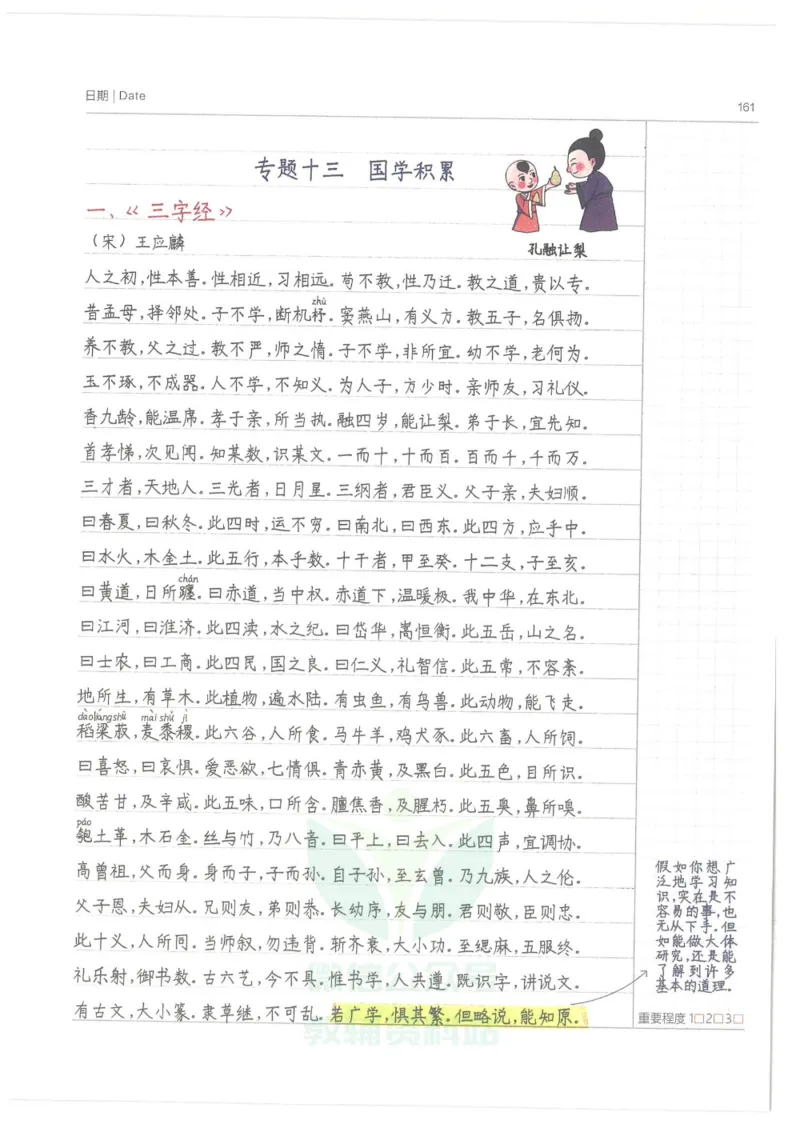 日期 | Date
161
专题十三 国学积累
一、《三字经》
(宋)王应麟
孔融让梨
人之初,性本善.性相近,习相远.苟不教,性乃迁.教之道,贵以专.
zhù
昔孟母,择邻处.子不学,断机杼.窦燕山,有义方.教五子,名俱扬.
养不教,父之过.教不严,师之惰.子不学,非所宜.幼不学,老何为.
玉不琢,不成器.人不学,不知义.为人子,方少时.亲师友,习礼仪.
香九龄,能温席.孝于亲,所当执.融四岁,能让梨.弟于长,宜先知.
首孝悌,次见闻.知某数,识某文.一而十,十而百.百而千,千而万.
三才者,天地人.三光者,日月星.三纲者,君臣义.父子亲,夫妇顺.
曰春夏,曰秋冬.此四时,运不穷.曰南北,曰西东.此四方,应乎中.
曰水火,木金土.此五行,本乎数.十干者,甲至癸.十二支,子至亥.
chán
曰黄道,日所躔.曰赤道,当中权.赤道下,温暖极.我中华,在东北.
曰江河,曰淮济.此四渎,水之纪.曰岱华,嵩恒衡.此五岳,山之名.
曰士农,曰工商.此四民,国之良.曰仁义,礼智信.此五常,不容紊.
地所生,有草木.此植物,遍水陆.有虫鱼,有鸟兽.此动物,能飞走.
dàoliángshū mài shǔ jì
稻粱菽,麦黍稷.此六谷,人所食.马牛羊,鸡犬豕.此六畜,人所饲.
曰喜怒,曰哀惧.爱恶欲,七情俱.青赤黄,及黑白.此五色,目所识.
酸苦甘,及辛咸.此五味,口所含.膻焦香,及腥朽.此五臭,鼻所嗅.
páo
匏土革,木石金.丝与竹,乃八音.曰平上,曰去入.此四声,宜调协.
高曾祖,父而身.身而子,子而孙.自子孙,至玄曾.乃九族,人之伦.
父子恩,夫妇从.兄则友,弟则恭.长幼序,友与朋.君则敬,臣则忠.
此十义,人所同.当师叙,勿违背.斩齐衰,大小功.至缌麻,五服终.
礼乐射,御书数.古六艺,今不具.惟书学,人共遵.既识字,讲说文.
有古文,大小篆.隶草继,不可乱.若广学,惧其繁.但略说,能知原.
假如你想广
泛地学习知
识,实在是不
容易的事,也
无从下手.但
如能做大体
研究,还是能
了解到许多
基本的道理。
重要程度 1□2□3□
教辅资料站